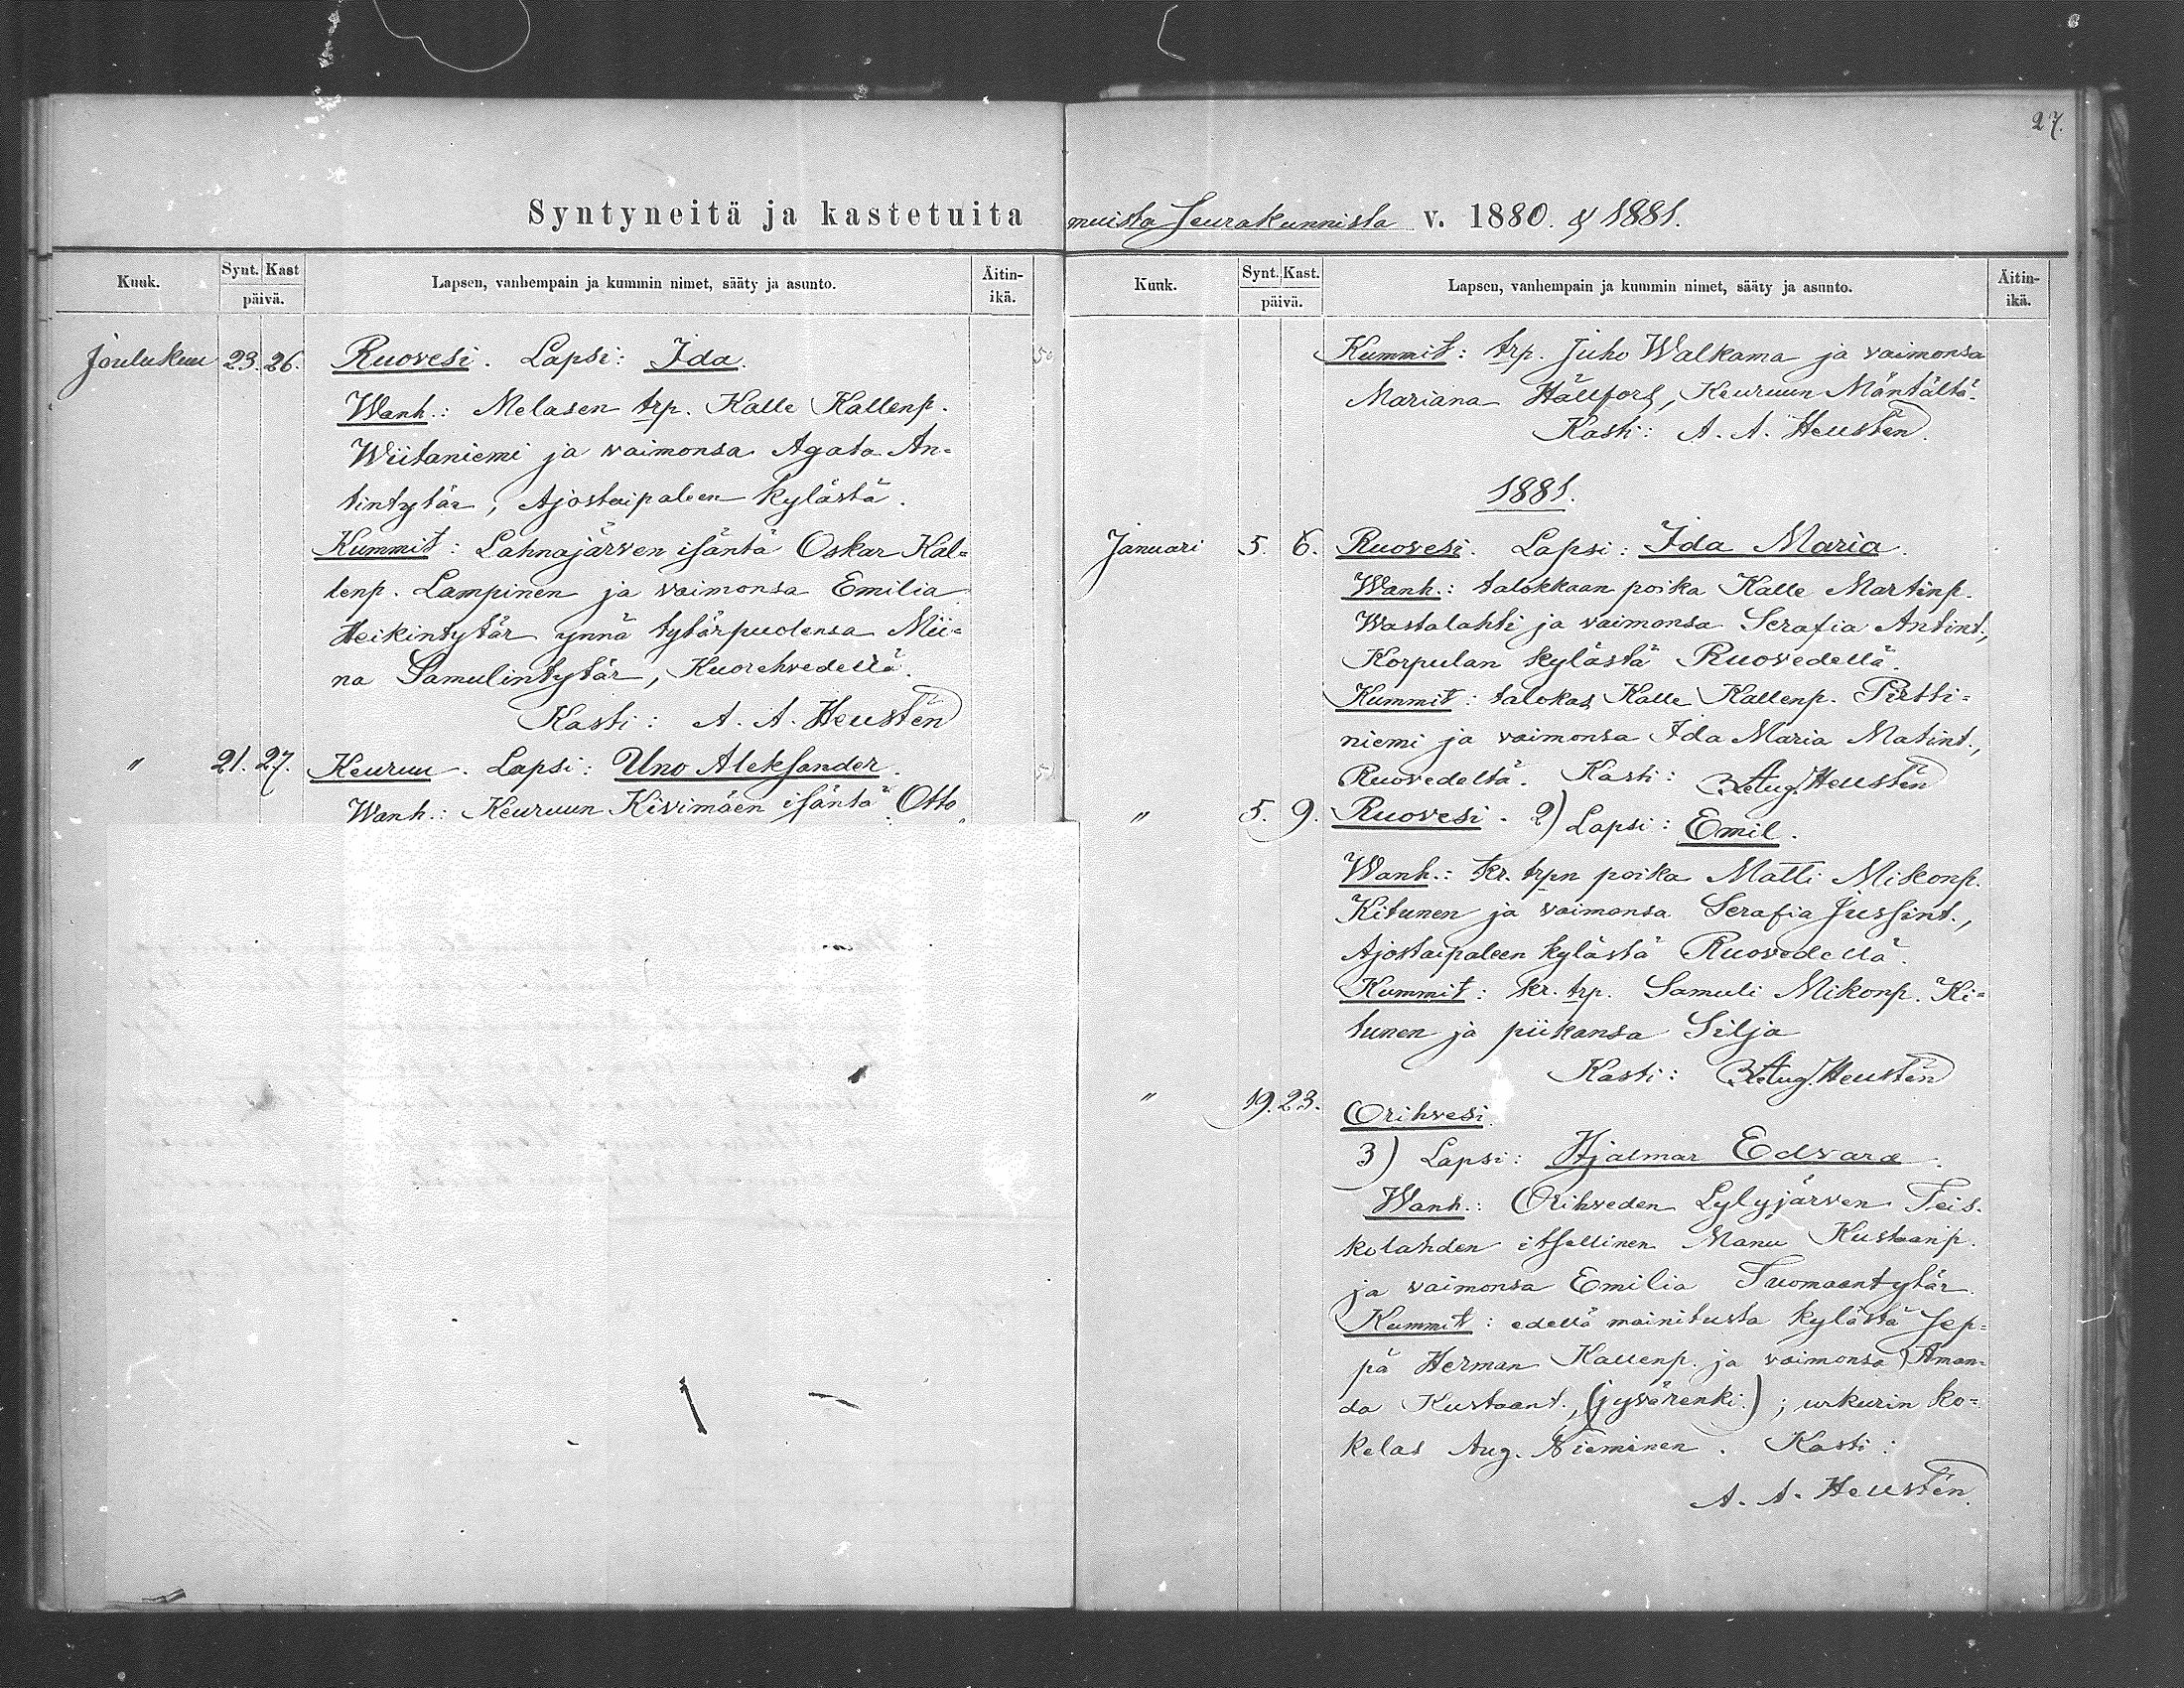 27.
Syntyneitä ja kastetuita muista Seurakunnista v. 1880. & 1881.
Kuuk. Synt. Kast päivä. Lapsen, vanhempain ja kummin nimet, sääty ja asunto. Äitin-ikä.
Joulukuu 23. 26. Ruovesi. Lapsi: Ida.
Wanh.: Melasen trp. Kalle Kallenp.
Wiitaniemi ja vaimonsa Agata An=
tintytär, Ajostaipaleen kylästä.
Kummit: Lahnajärven isäntä Oskar Kal=
lenp. Lampinen ja vaimonsa Emilia
Heikintytär ynnä tytärpuolensa Mii=
na Samulintytär, Kuorehvedellä.
Kasti: A. A. Heustén
" 21. 27. Keuruu. Lapsi: Uno Aleksander.
Wanh.: Keuruun Kivimäen isäntä Otto
Kuuk. Synt. Kast. päivä. Lapsen, vanhempain ja kummin nimet, sääty ja asunto. Äitin-ikä.
Kummit: trp. Juho Walkama ja vaimonsa
Mariana Hällfors, Keuruun Mäntältä.
Kasti: A. A. Heustén.
1881.
Januari 5. 6. Ruovesi. Lapsi: Ida Maria.
Wanh.: talokkaan poika Kalle Martinp.
Wastalahti ja vaimonsa Serafia Antint.,
Korpulan kylästä Ruovedellä.
Kummit: talokas Kalle Kallenp. Pirtti=
niemi ja vaimonsa Ida Maria Matint.,
Ruovedeltä. Kasti: Aug. Heustén
" 5. 9. Ruovesi. 2) Lapsi: Emil.
Wanh.: kr. trpn poika Matti Mikonp.
Kitunen ja vaimonsa Serafia Jussint.,
Ajostaipaleen kylästä Ruovedellä.
Kummit: kr. trp. Samuli Mikonp. Ki=
tunen ja piikansa Silja
Kasti: Aug. Heustén
" 19. 23. Orihvesi.
3) Lapsi: Hjalmar Edvard.
Wanh.: Orihveden Lylyjärven Teis.
kolahden itsellinen Manu Kustaanp.
ja vaimonsa Emilia Tuomaantytär.
Kummit: edellä mainitusta kylästä Sep=
pä Herman Kallenp. ja vaimonsa Aman=
da Kustaant., (jyvärenki.); urkurin ko=
kelas Aug. Nieminen. Kasti:
A. A. Heustén.